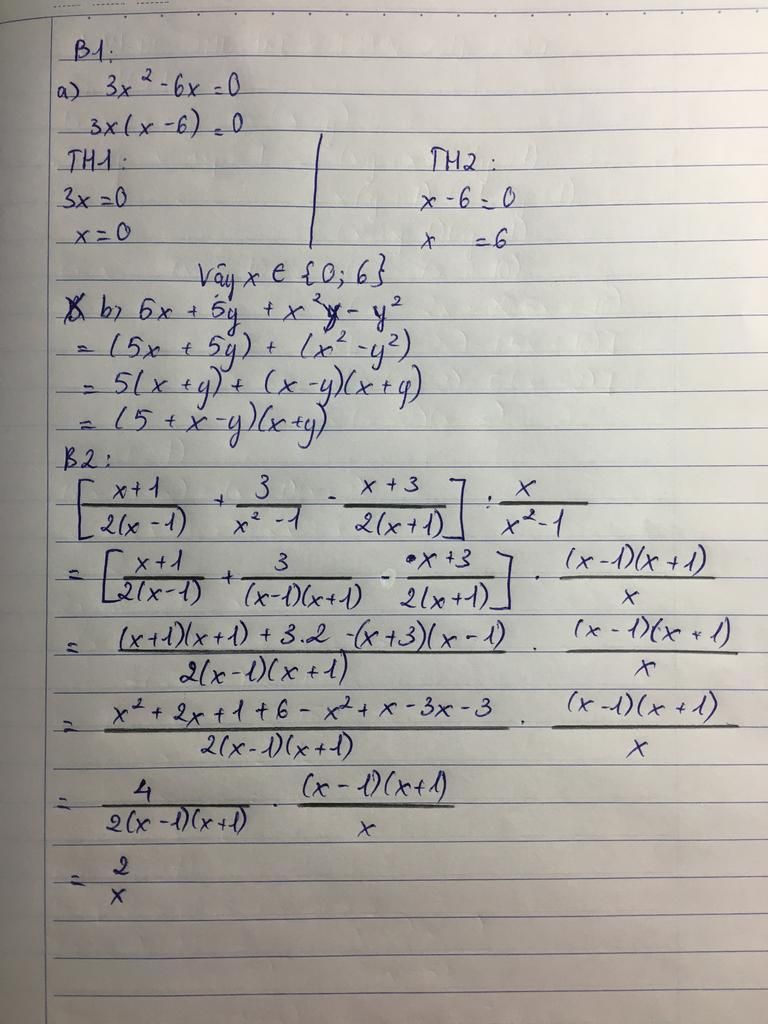 B1:
a) 3x² - 6x = 0
3x(x - 6) = 0
TH1: TH2:
3x = 0 x - 6 = 0
x = 0 x = 6
Vậy x ∈ {0; 6}
b, 5x + 5y + x² - y²
= (5x + 5y) + (x² - y²)
= 5(x + y) + (x - y)(x + y)
= (5 + x - y)(x + y)
B2:
[(x + 1)/(2(x - 1)) + 3/(x² - 1) - (x + 3)/(2(x + 1))] : x/(x² - 1)
= [(x + 1)/(2(x - 1)) + 3/((x - 1)(x + 1)) - (x + 3)/(2(x + 1))] . ((x - 1)(x + 1))/x
= ((x + 1)(x + 1) + 3.2 - (x + 3)(x - 1))/(2(x - 1)(x + 1)) . ((x - 1)(x + 1))/x
= (x² + 2x + 1 + 6 - x² + x - 3x - 3)/(2(x - 1)(x + 1)) . ((x - 1)(x + 1))/x
= 4/(2(x - 1)(x + 1)) . ((x - 1)(x + 1))/x
= 2/x